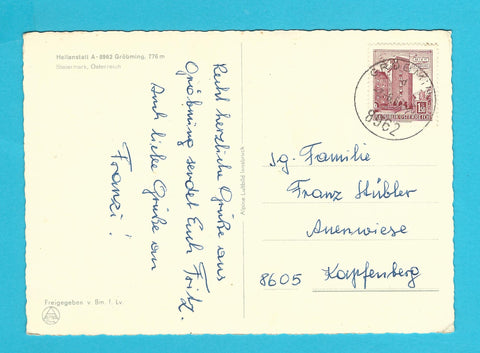 Heilanstalt A-8962 Gröbming, 776 m
Steiermark, Österreich
Recht herzliche Grüße aus
Gröbming sendet Euch Fritz.
Auch liebe Grüße an
Franzi!
Freigegeben v. Bm. f. Lv.
Alpine Luftbild Innsbruck
8962
REPUBLIK ÖSTERREICH
sg. Familie
Franz Stübler
Auenwiese
8605 Kapfenberg